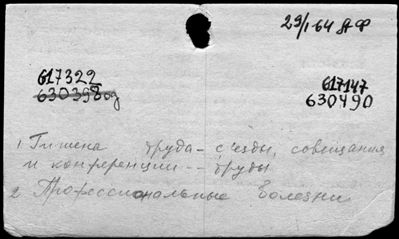 29/I-64 АФ
617322
630398од
617147
630490
1 Гигиена труда - съезды, совещания
и конференции -- труды
2 Профессиональные болезни